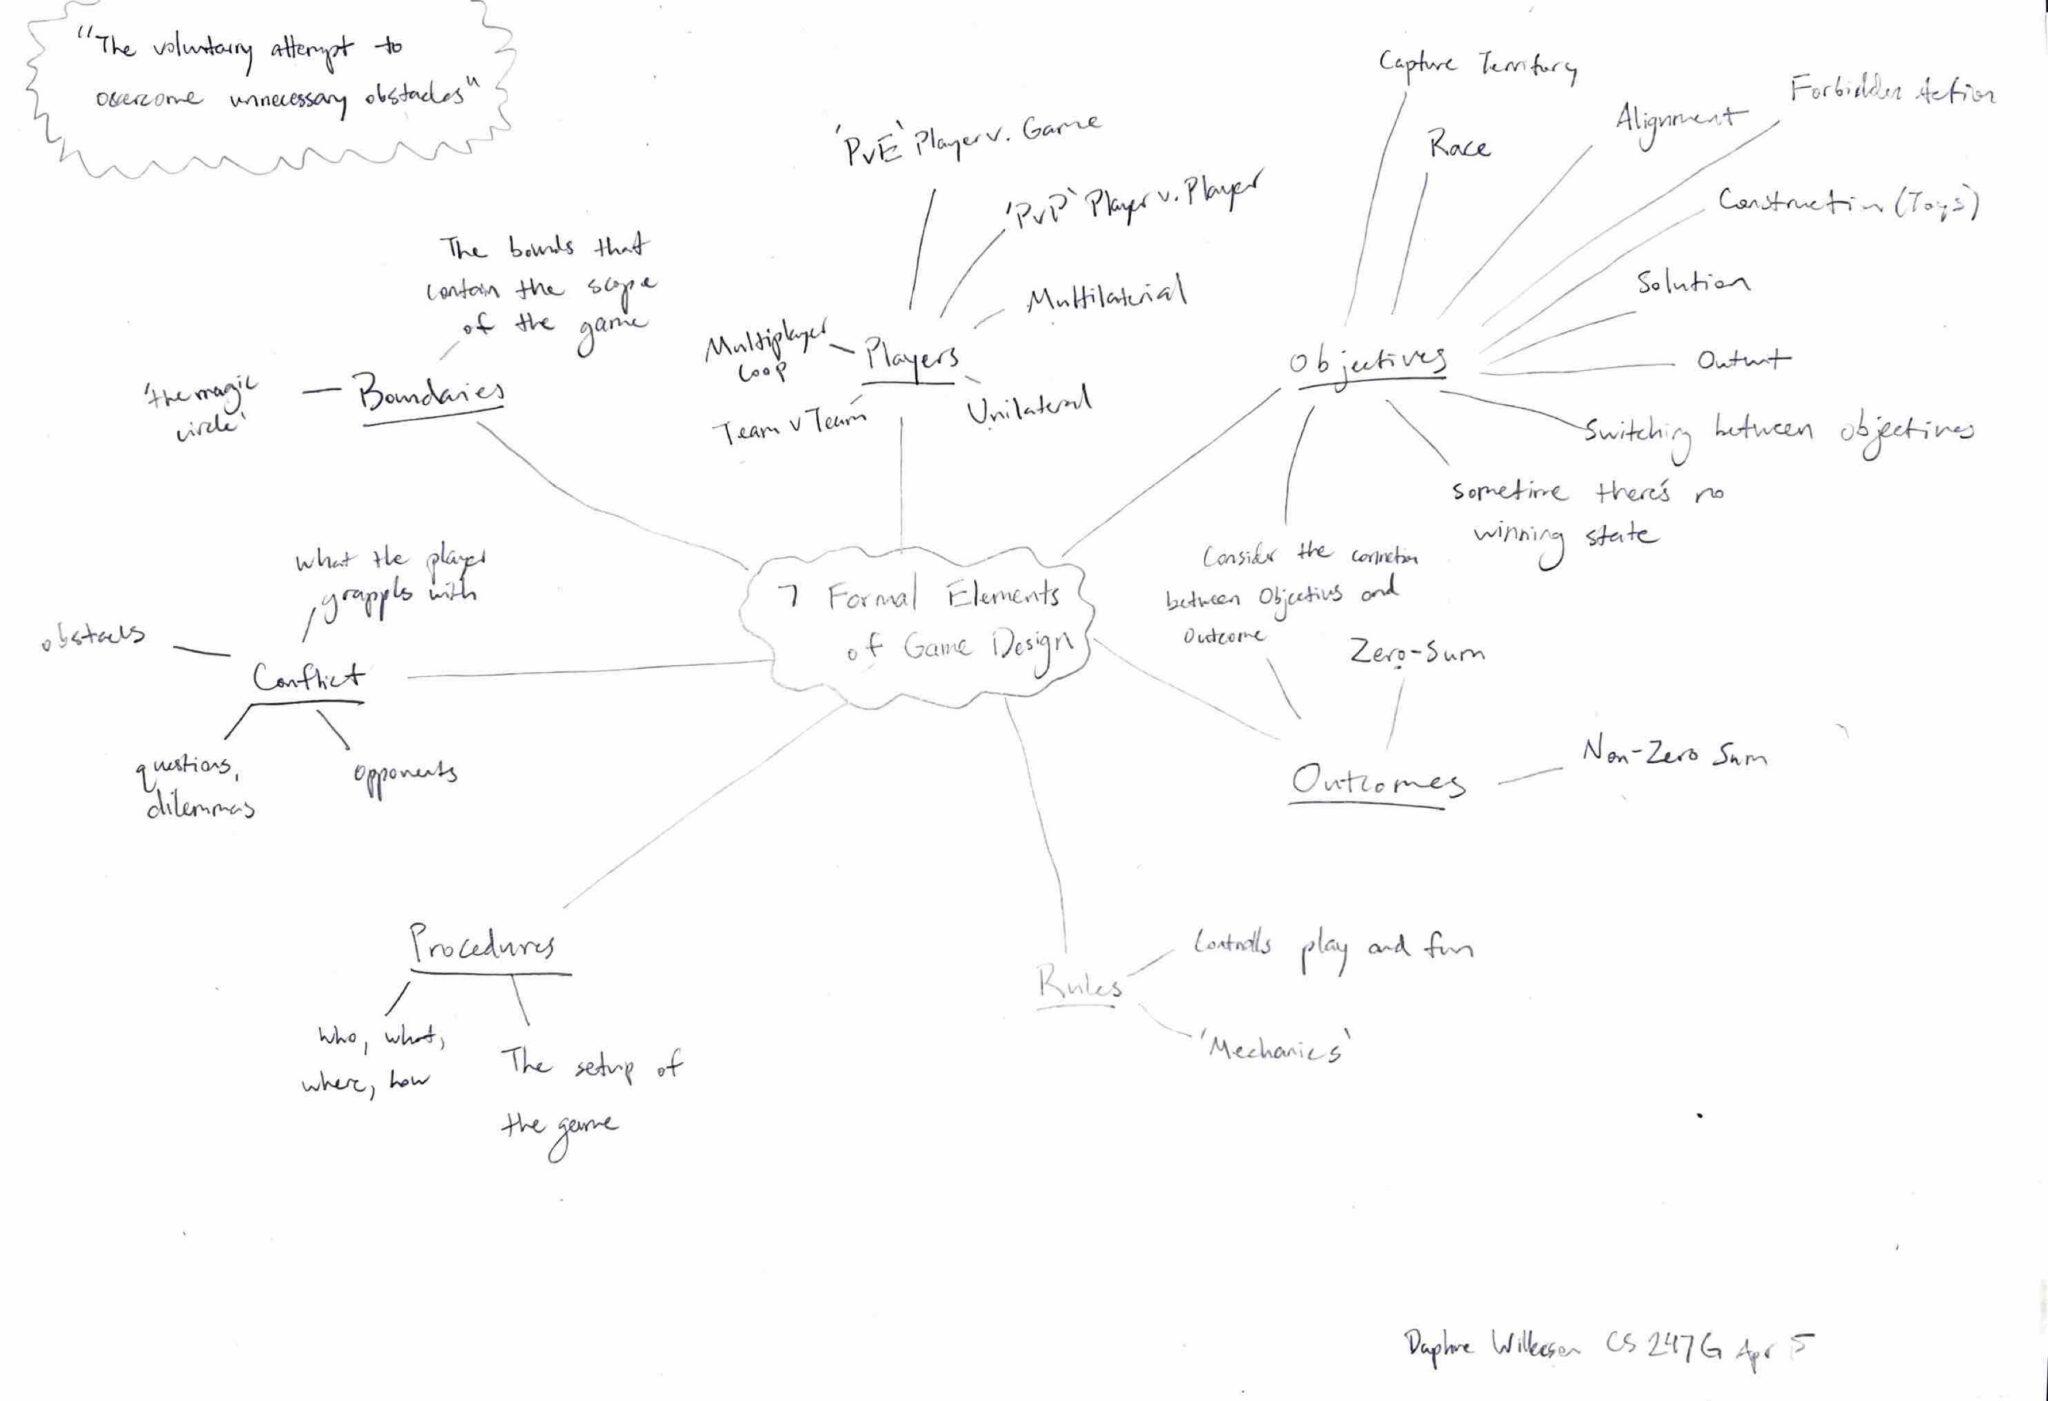 "The voluntary attempt to
overcome unnecessary obstacles"
'PvE' Player v. Game
'PvP' Player v. Player
Multilaterial
Multiplayer
Loop
Players
Team v Team
Unilateral
The bounds that
contain the scope
of the game
'the magic
circle'
Boundaries
Capture Territory
Race
Alignment
Forbidden Action
Construction (Toys)
Solution
Outwit
Objectives
Switching between objectives
sometime there's no
winning state
Consider the connection
between Objectives and
Outcome
what the player
grapples with
obstacls
Conflict
questions,
dilemmas
opponents
7 Formal Elements
of Game Design
Zero-Sum
Non-Zero Sum
Outcomes
Procedures
who, what,
where, how
The setup of
the game
Rules
Controlls play and fun
'Mechanics'
Daphne Wilkerson CS 247G Apr 5